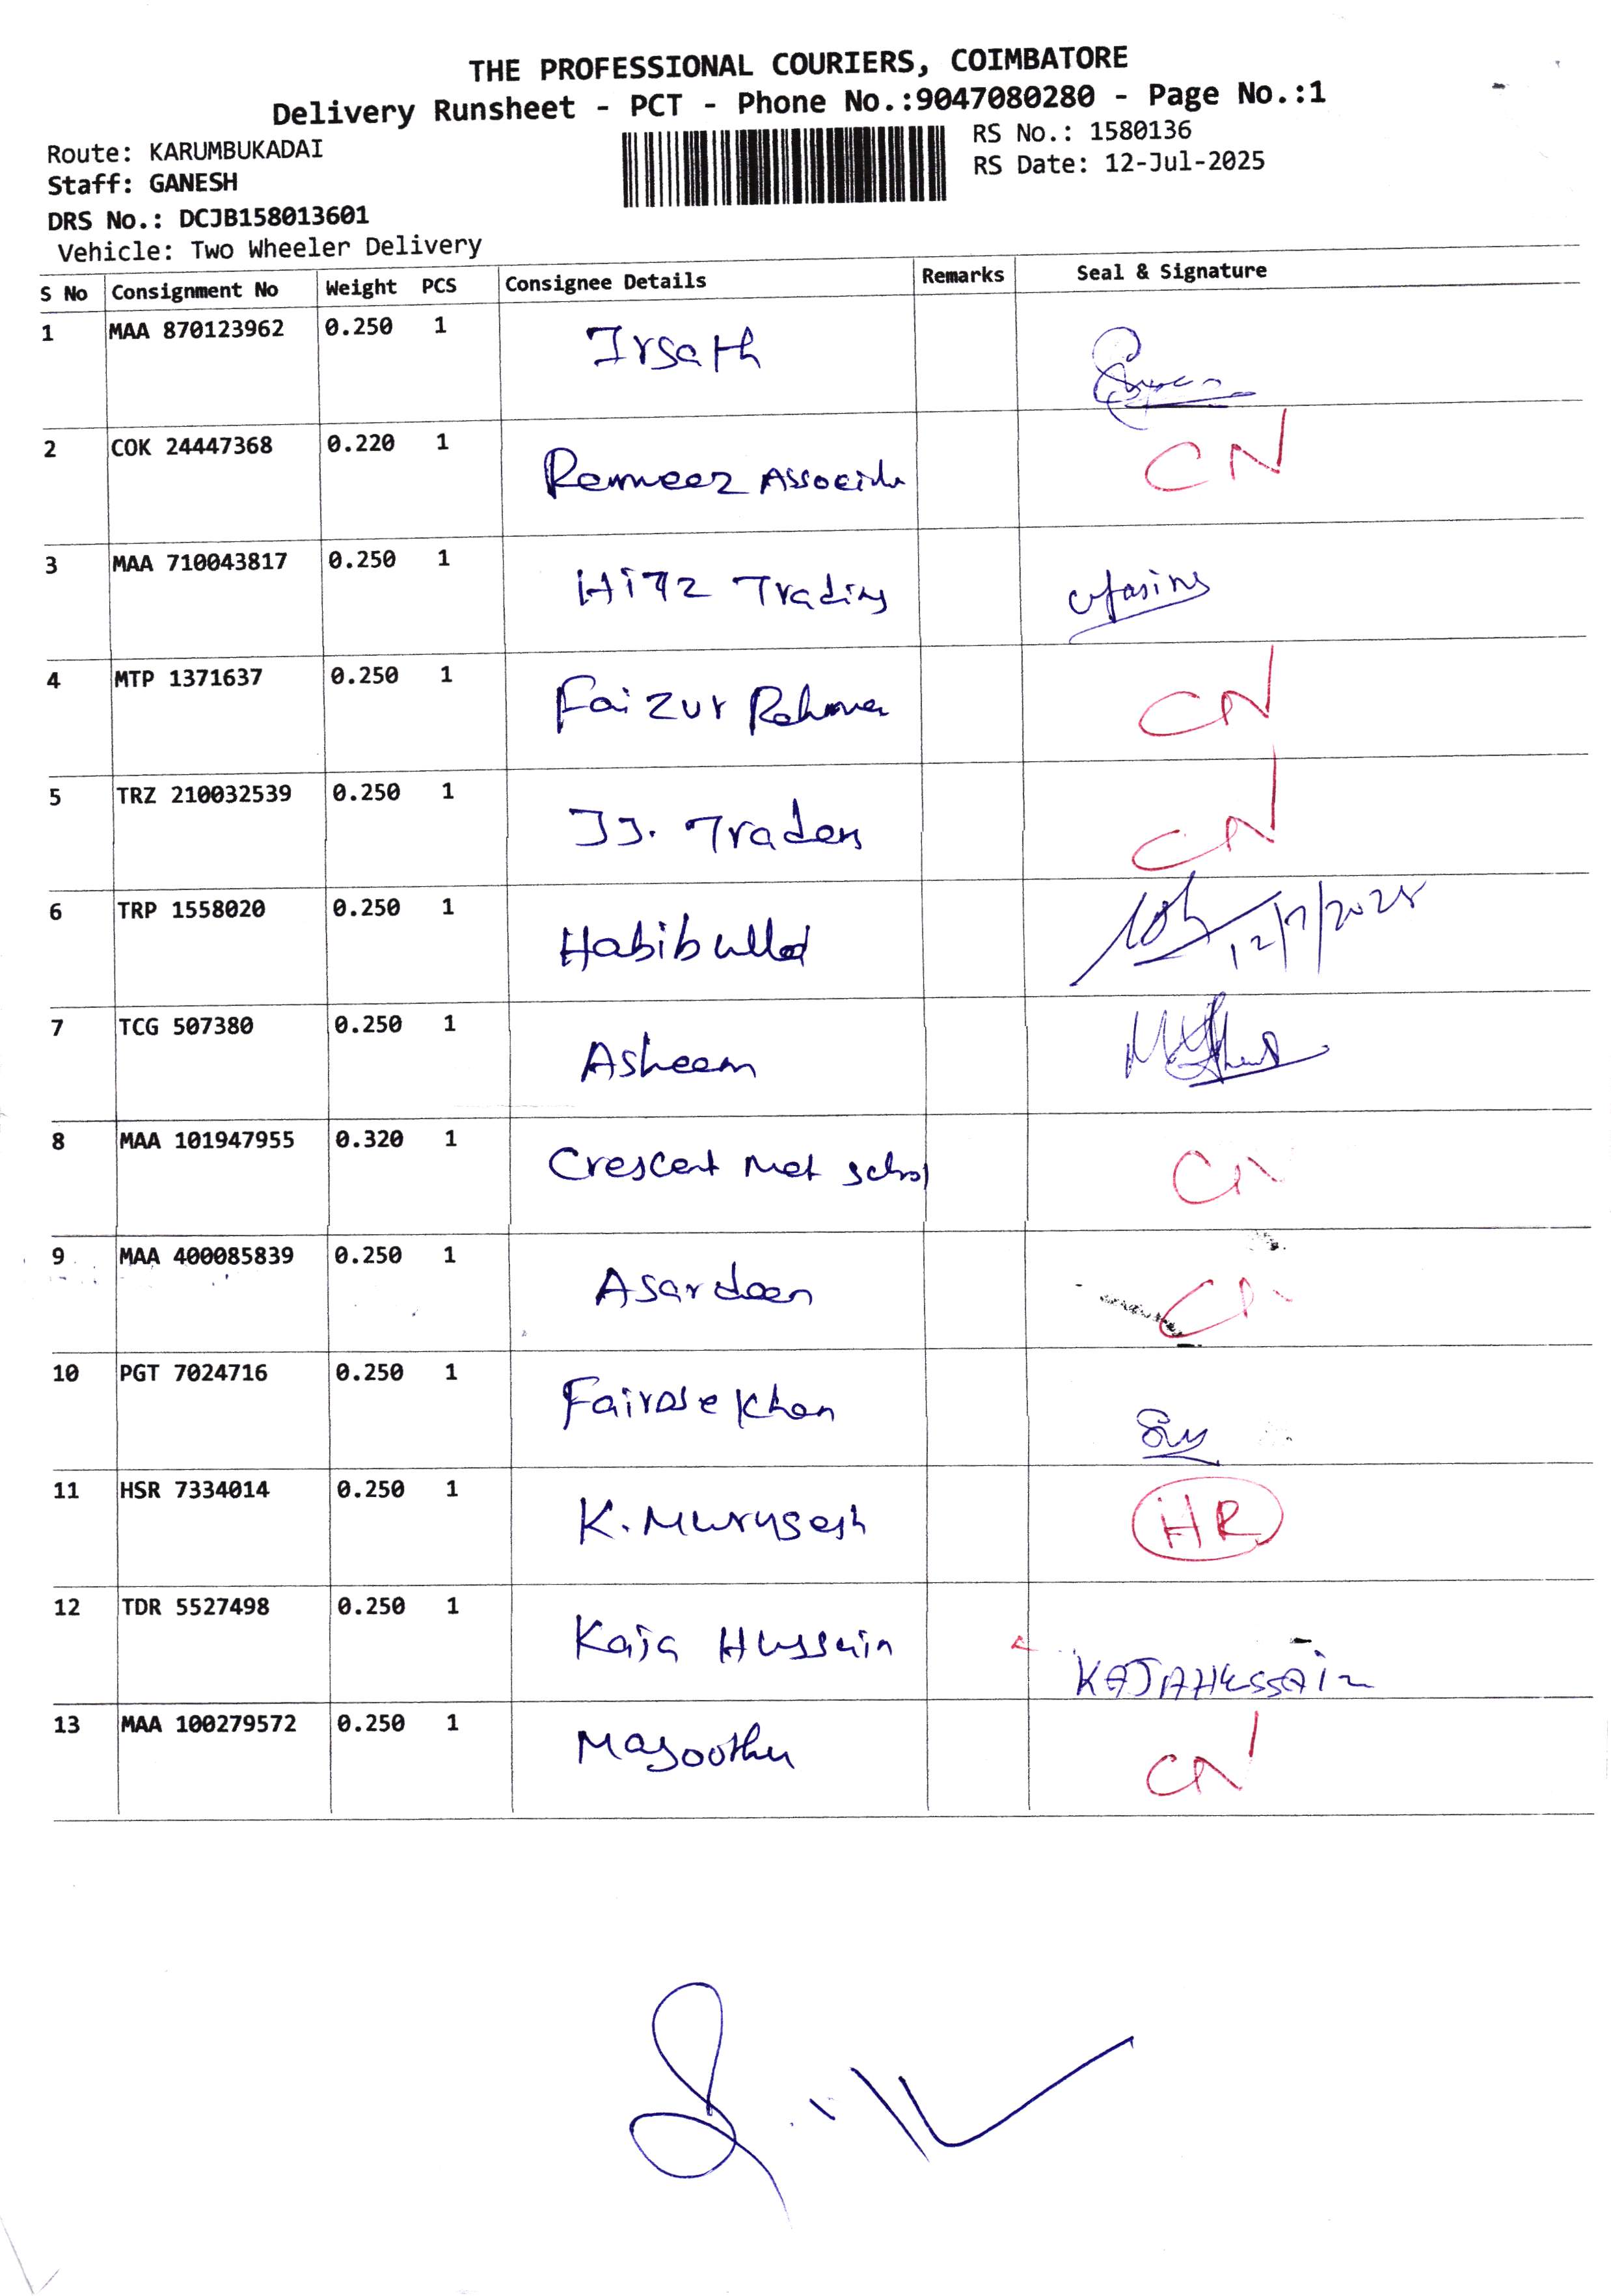 THE PROFESSIONAL COURIERS, COIMBATORE
Delivery Runsheet - PCT - Phone No.:9047080280 - Page No.:1
Route: KARUMBUKADAI
RS No.: 1580136
Staff: GANESH
RS Date: 12-Jul-2025
DRS No.: DCJB158013601
Vehicle: Two Wheeler Delivery
S No Consignment No Weight PCS Consignee Details Remarks Seal & Signature
1 MAA 870123962 0.250 1 Irsath
2 COK 24447368 0.220 1 Rameez CN
3 MAA 710043817 0.250 1 Trading
4 MTP 1371637 0.250 1 Faizur CN
5 TRZ 210032539 0.250 1 JJ. Traders CN
6 TRP 1558020 0.250 1 Habibullah 12/7/2025
7 TCG 507380 0.250 1 Asheem
8 MAA 101947955 0.320 1 Crescent Met School CN
9 MAA 400085839 0.250 1 Asardeen CN
10 PGT 7024716 0.250 1 Fairose Khan
11 HSR 7334014 0.250 1 K. Murugesh HR
12 TDR 5527498 0.250 1 Kaja Hussain KAJAHUSSAIN
13 MAA 100279572 0.250 1 CN